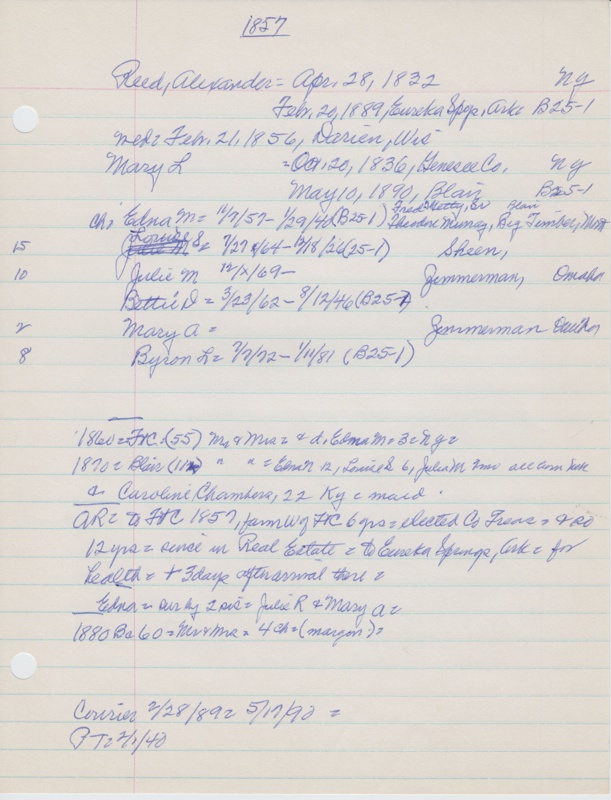 1857
Reed, Alexander = Apr. 28, 1832 NY
Febr. 20, 1889, Eureka Spgs, Ark B25-1
med = Febr. 21, 1856, Darien, Wis
Mary L = Oct. 20, 1836, Genesee Co. NY
May 10, 1890, Blair B25-1
Fred Blair
ch; Edna M = 11/7/57 - 1/29/40 (B25-1) Theodore Murray, Big Timber, Mont
15 Louise S = 7/27/64 - 12/18/26 (25-1) Skeen,
10 Julie M 12/x/69 - Zimmerman, Omaha
Bettie D = 3/23/62 - 8/12/46 (B25-1)
2 Mary A = Zimmerman Omaha
8 Byron L = 7/7/72 - 1/11/81 (B25-1)
1860 = FtC (55) Mr & Mrs = & d, Edna M = 3 = NY =
1870 = Blair (11) " " = Edna 12, Louise S 6, Julia M 7mo all born Neb
& Caroline Chambers, 22 Ky = maid.
AR = to FtC 1857, farm W of FtC 6 yrs = elected Co Treas = & so
12 yrs = since in Real Estate = to Eureka Springs, Ark = for
health = + 3 days after arrival there =
Edna = sur by 2 sis = Julie R & Mary A =
1880 Ba 60 = Mr & Mrs = 4 ch = (margin) =
Courier 2/28/89 = 5/17/90 =
PT = 2/1/40